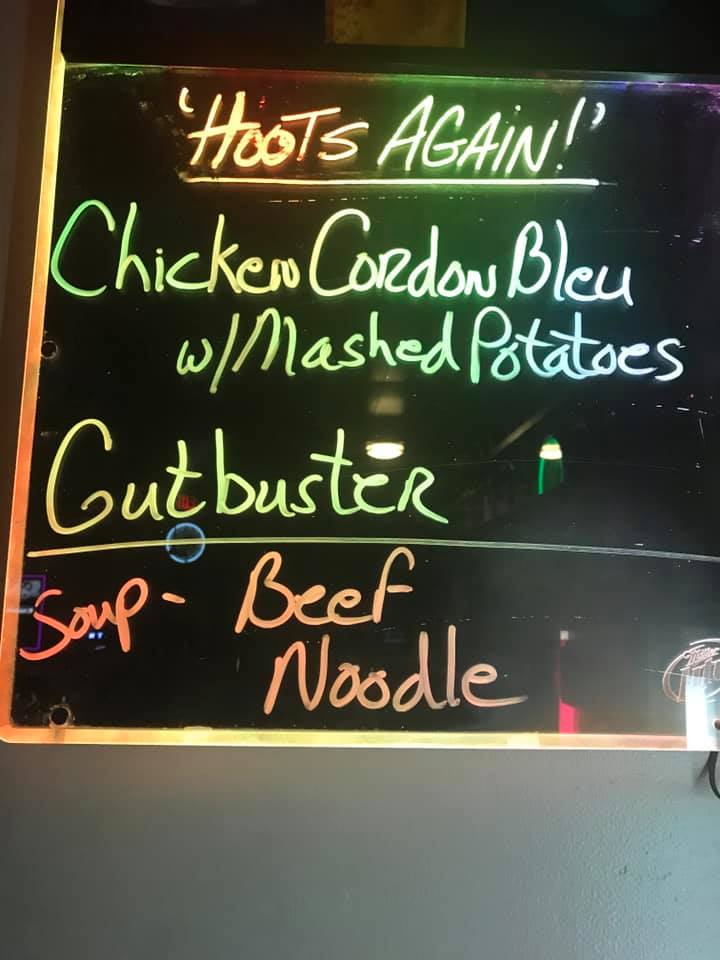 'HOOTS AGAIN!'
Chicken Cordon Bleu
w/Mashed Potatoes
Gutbuster
Soup- Beef
Noodle